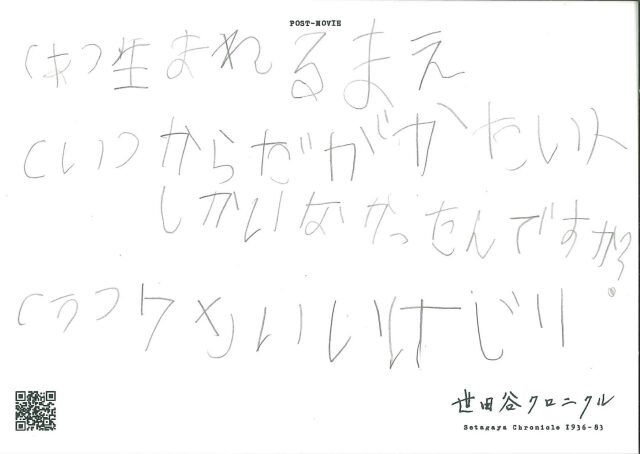 POST-MOVIE
(あ)生まれるまえ
(い)からだがかたい人
しかいなかったんですか?
(う)
世田谷クロニクル
Setagaya Chronicle 1936-83